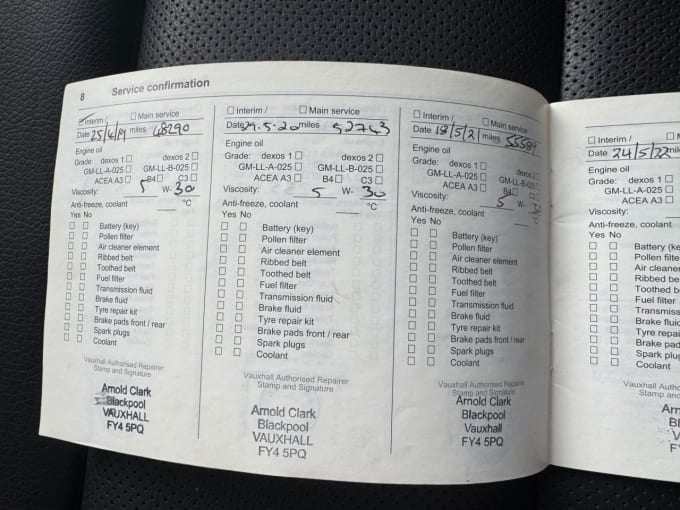 8 Service confirmation
Interim / Main service
Date 25/4/19 miles 48290
Engine oil
Grade: dexos 1 dexos 2
GM-LL-A-025 GM-LL-B-025
ACEA A3 B4 C3
Viscosity: 5 W- 30
Anti-freeze, coolant °C
Yes No
Battery (key)
Pollen filter
Air cleaner element
Ribbed belt
Toothed belt
Fuel filter
Transmission fluid
Brake fluid
Tyre repair kit
Brake pads front / rear
Spark plugs
Coolant
Vauxhall Authorised Repairer
Stamp and Signature
Arnold Clark
Blackpool
VAUXHALL
FY4 5PQ
Interim / Main service
Date 29.5.20 miles 52743
Engine oil
Grade: dexos 1 dexos 2
GM-LL-A-025 GM-LL-B-025
ACEA A3 B4 C3
Viscosity: 5 W- 30
Anti-freeze, coolant °C
Yes No
Battery (key)
Pollen filter
Air cleaner element
Ribbed belt
Toothed belt
Fuel filter
Transmission fluid
Brake fluid
Tyre repair kit
Brake pads front / rear
Spark plugs
Coolant
Vauxhall Authorised Repairer
Stamp and Signature
Arnold Clark
Blackpool
VAUXHALL
FY4 5PQ
Interim / Main service
Date 18/5/21 miles 55589
Engine oil
Grade: dexos 1 dexos 2
GM-LL-A-025 GM-LL-B-025
ACEA A3 B4 C3
Viscosity: 5 W- 30
Anti-freeze, coolant °C
Yes No
Battery (key)
Pollen filter
Air cleaner element
Ribbed belt
Toothed belt
Fuel filter
Transmission fluid
Brake fluid
Tyre repair kit
Brake pads front / rear
Spark plugs
Coolant
Vauxhall Authorised Repairer
Stamp and Signature
Arnold Clark
Blackpool
Vauxhall
FY4 5PQ
Interim / M
Date 24/5/22 mile
Engine oil
Grade: dexos 1
GM-LL-A-025
ACEA A3
Viscosity:
Anti-freeze, coolant
Yes No
Battery (ke
Pollen filte
Air cleaner
Ribbed be
Toothed b
Fuel filter
Transmiss
Brake fluid
Tyre repair
Brake pad
Spark plug
Coolant
Vauxhall Auth
Stamp and
Arn
Bl
V
F